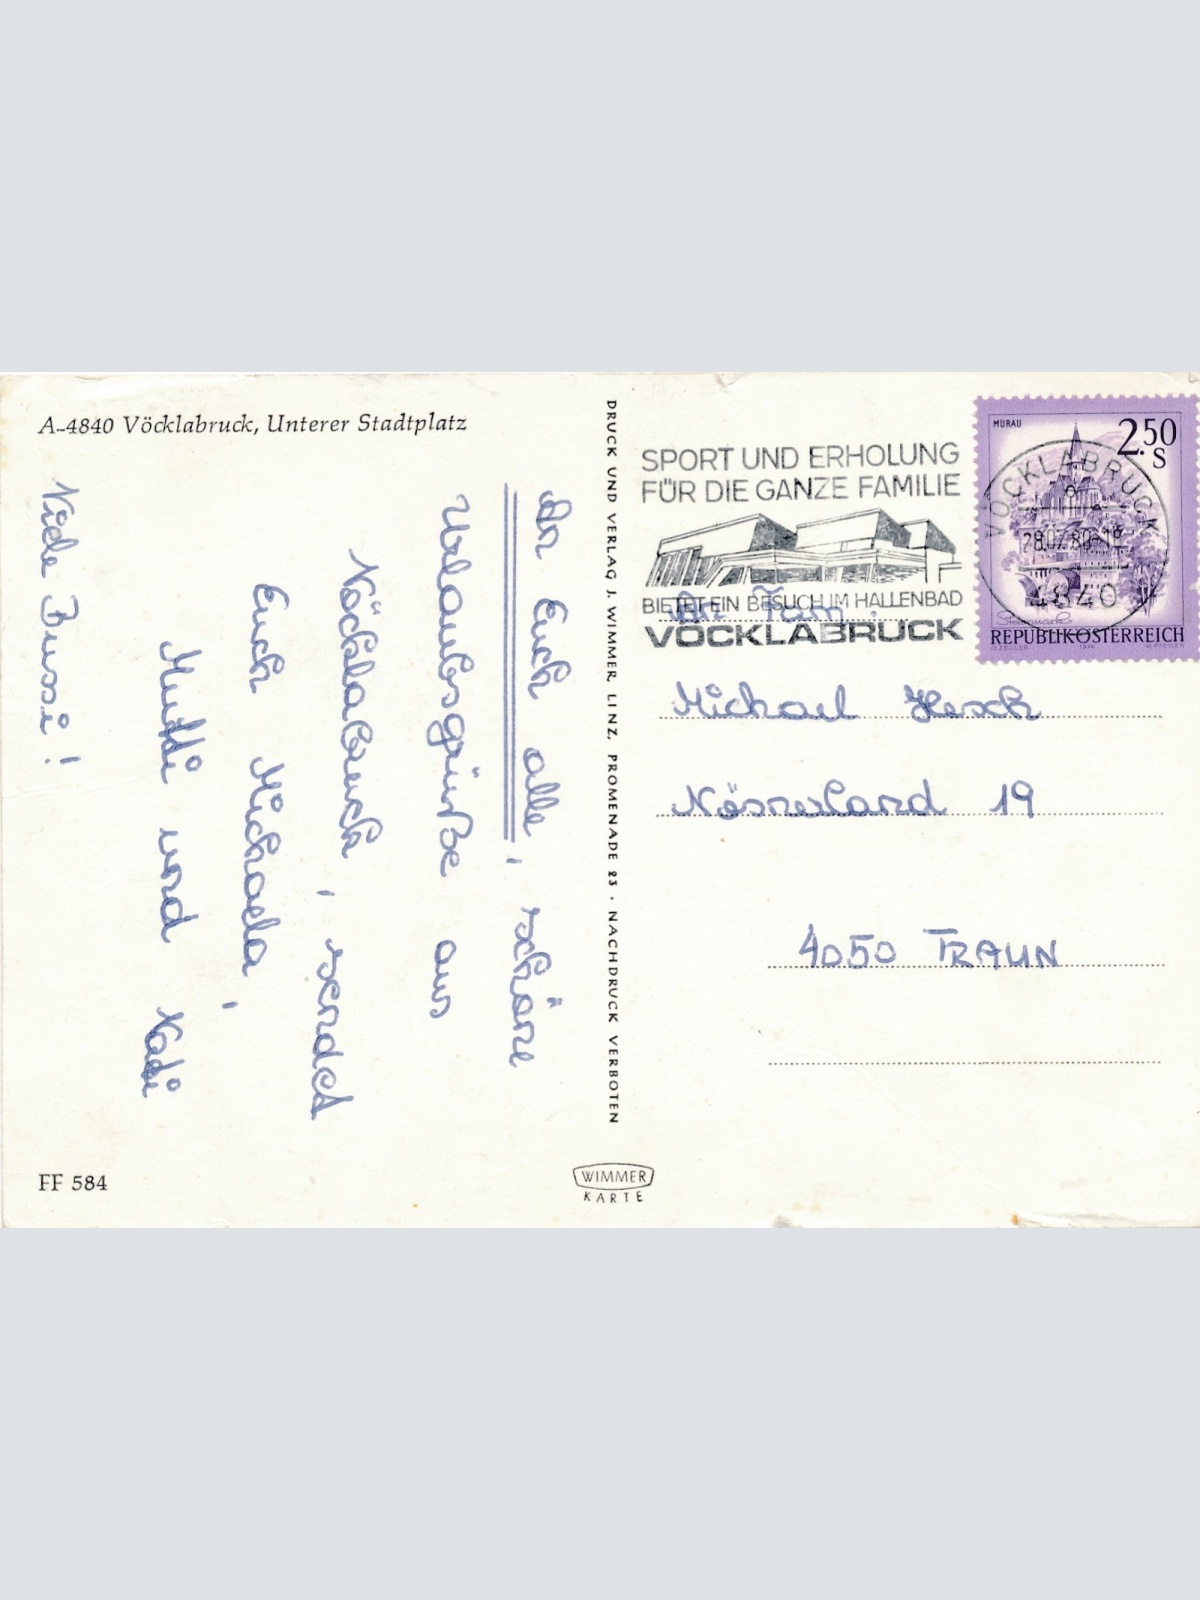 A-4840 Vöcklabruck, Unterer Stadtplatz
An Euch alle, schöne
Urlaubsgrüße aus
Vöcklabruck, sendet
Euch Michaela,
Mutti und Kadi
Viele Bussi!
FF 584
DRUCK UND VERLAG J. WIMMER, LINZ, PROMENADE 23 · NACHDRUCK VERBOTEN
WIMMER
KARTE
SPORT UND ERHOLUNG
FÜR DIE GANZE FAMILIE
BIETET EIN BESUCH IM HALLENBAD
VÖCKLABRUCK
MURAU
2.50
S
VÖCKLABRUCK
4840
Steiermark
REPUBLIK ÖSTERREICH
An Fam.
Michael Hesch
Nösnerland 19
4050 TRAUN